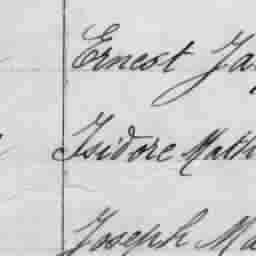 Ernest Ja
Isidore Math
Joseph Ma